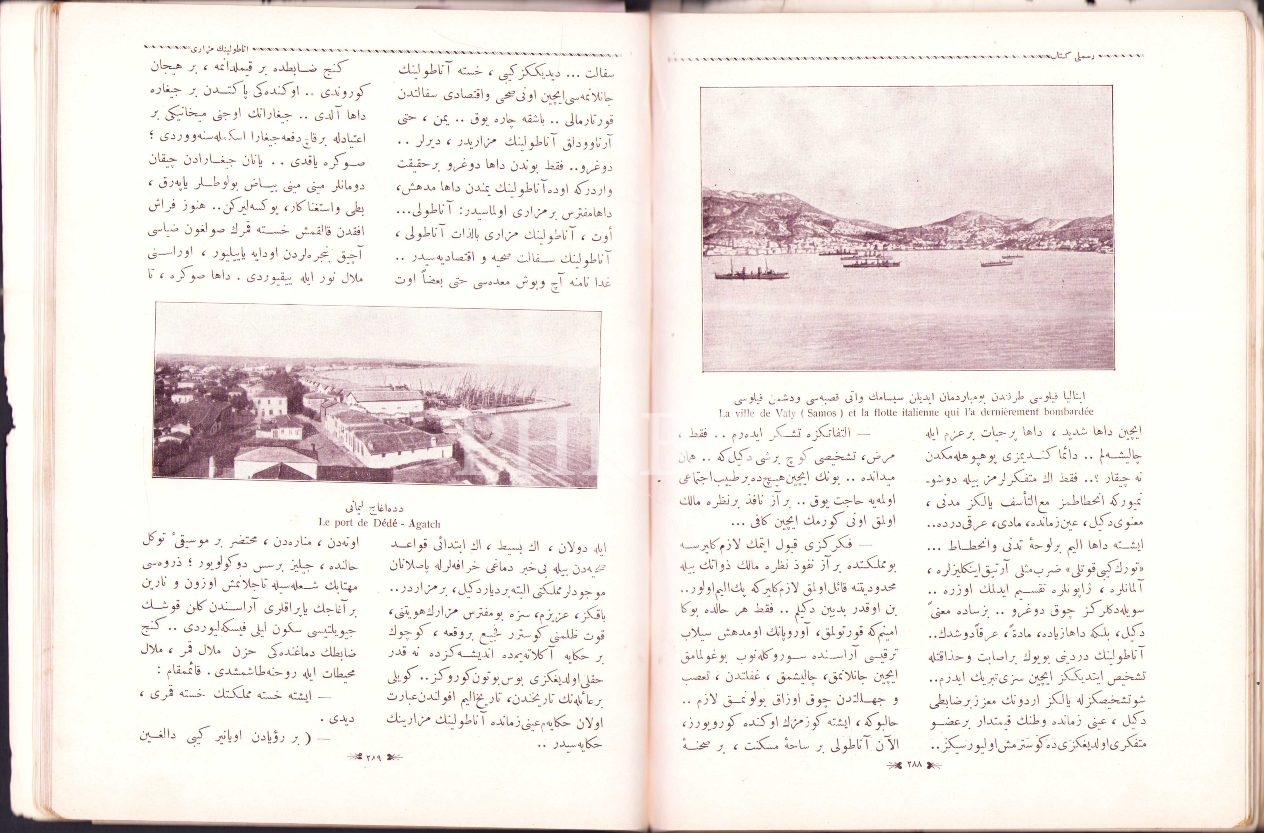 رسملى كتاب
ايتاليا فيلوسى طرفندن بومباردمان ايديلن سيسامك واتى قصبه‌سى ودشمن فيلوسى
La ville de Vaty ( Samos ) et la flotte italienne qui l'a dernièrement bombardée
ايچين داها شديد ، داها پرحيات برعزم ايله
چاليشه‌لم .. دائما كنديمزى پوهپوهله‌مكدن
نه چيقار ؟.. فقط اك متفكرلرمز بيله دوشو-
نميوركه انحطاطمز مع التأسف يالكز مدنى ،
معنوى دكيل ، عين زمانده ، مادى ، عرقى درده..
ايشته داها اليم برلوحهٔ تدنى وانحطاط ...
«تورك كبى قوتلى» ضرب مثلى آرتيق انكليزلره ،
آلمانلره ، ژاپونلره تقسيم ايدلمك اوزره ..
سويله‌دكلركز چوق دوغرو .. بزساده معنىً
دكيل ، بلكه داها زياده ، مادةً ، عرقاً دوشدك..
آناطولينك دردينى بويوك براصابت وحذاقتله
تشخيص ايتديككز ايچين سزى تبريك ايدرم..
شوتشخيصكزله يالكز اردونك معزز برضابطى
دكيل ، عينى زمانده وطنك قيمتدار برعضو
متفكرى اولديغكزى ده كوسترمش اوليورسيكز..
— التفاتكزه تشكر ايده‌رم .. فقط ،
مرض ، تشخيصى كوچ برشى دكيل كه .. همان
ميدانده .. بونك ايچين هيچ ده برطبيب اجتماعى
اولمه‌يه حاجت يوق .. برآز نافذ برنظره مالك
اولمق اونى كورمك ايچين كافى ...
— فكركزى قبول ايتمك لازم كليرسه
بومملكتده برآز نفوذ نظره مالك ذواتك بيله
محدوديتنه قائل اولمق لازم كليركه پك اليم اولور..
بن اوقدر بدبين دكيلم .. فقط هر حالده بوكا
امينم كه قورتولمق ، آوروپانك اومدهش سيلاب
ترقيسى آراسنده سوروكله‌نوب بوغولمامق
ايچين جانلانمق ، چاليشمق ، غفلتدن ، تعصب
و جهالتدن چوق اوزاق بولونمق لازم ..
حالبوكه ، ايشته كوزمزك اوكنده كورويورز،
الآن آناطولى بر ساحهٔ مسكنت ، بر صحنهٔ
٢٨٨
اناطولينك مزارى
سفالت ... ديديككز كبى ، خسته آناطولينك
جانلانمه‌سى ايچين اونى صحى واقتصادى سفالتدن
قورتارمالى .. باشقه چاره يوق .. يمن ، حتى
آرناووداق آناطولينك مزاريدر ، ديرلر ..
دوغرو.. فقط بوندن داها دوغرو برحقيقت
واردركه اوده آناطولينك يمندن داها مدهش،
داها مفترس برمزارى اولماسيدر: آناطولى...
أوت ، آناطولينك مزارى بالذات آناطولى ،
آناطولينك سفالت صحيه و اقتصاديه‌سيدر ..
غدا نامنه آچ وبوش معده‌سى حتى بعضاً اوت
كنج ضابطده بر قيملدانمه ، بر هيجان
كوروندى .. اوكنده‌كى پاكتدن بر جيغاره
داها آلدى .. جيغارانك اوجنى ميخانيكى بر
اعتيادله برقاچ دفعه جيغارا اسكمله‌سنه ووردى ؛
صوكره ياقدى .. يانان جيغارادن چيقان
دومانلر مينى مينى بياض بولوطلر ياپه‌رق ،
بطى واستغناكار، يوكسه‌ليركن.. هنوز فراش
افقدن قالقمش خسته قمرك صولغون ضياسى
آچيق پنجره‌لردن اودايه ياييليور ، اوراسنى
ملال نور ايله ييقيوردى . داها صوكره ، تا
دده‌اغاج ليمانى
Le port de Dédé - Agatch
ايله دولان ، اك بسيط ، اك ابتدائى قواعد
صحيه‌دن بيله بى خبر دماغى خرافه‌لرله ياصلانان
موجودلر مملكتى البته برديار دكيل ، برمزاردر..
باقكز ، عزيزم، سزه بومفترس مزارك هويتنى،
قوت ظلمنى كوسترر فجيع بروقعه ، كوچوك
بر حكايه آكلاته‌يم‌ده انديشه‌كزده نه قدر
حقلى اولديغكزى بوس بوتون كوروكز.. كويلى
برعائله‌نك تاريخندن، تاريخ اليم افولندن عبارت
اولان حكايه‌م عينى زمانده آناطولينك مزارينك
حكايه‌سيدر ..
اوته‌دن ، مناره‌دن ، محتضر بر موسيقئ توكل
حالنده ، جيليز برسس دوكولويور ؛ ذروه‌سى
مهتابك شعله‌سيله تاجلانمش اوزون و نارين
برآغاجك ياپراقلرى آراسندن كلن قوشك
جيويلتيسى سكون ليلى فيسكه‌ليوردى .. كنج
ضابطك دماغنده‌كى حزن ملال قمر ، ملال
محيطات ايله روحنه طاشمشدى . قائممقام :
— ايشته خسته مملكتك خسته قمرى ،
ديدى .
— ( بر رؤيادن اويانير كبى دالغين
٢٨٩